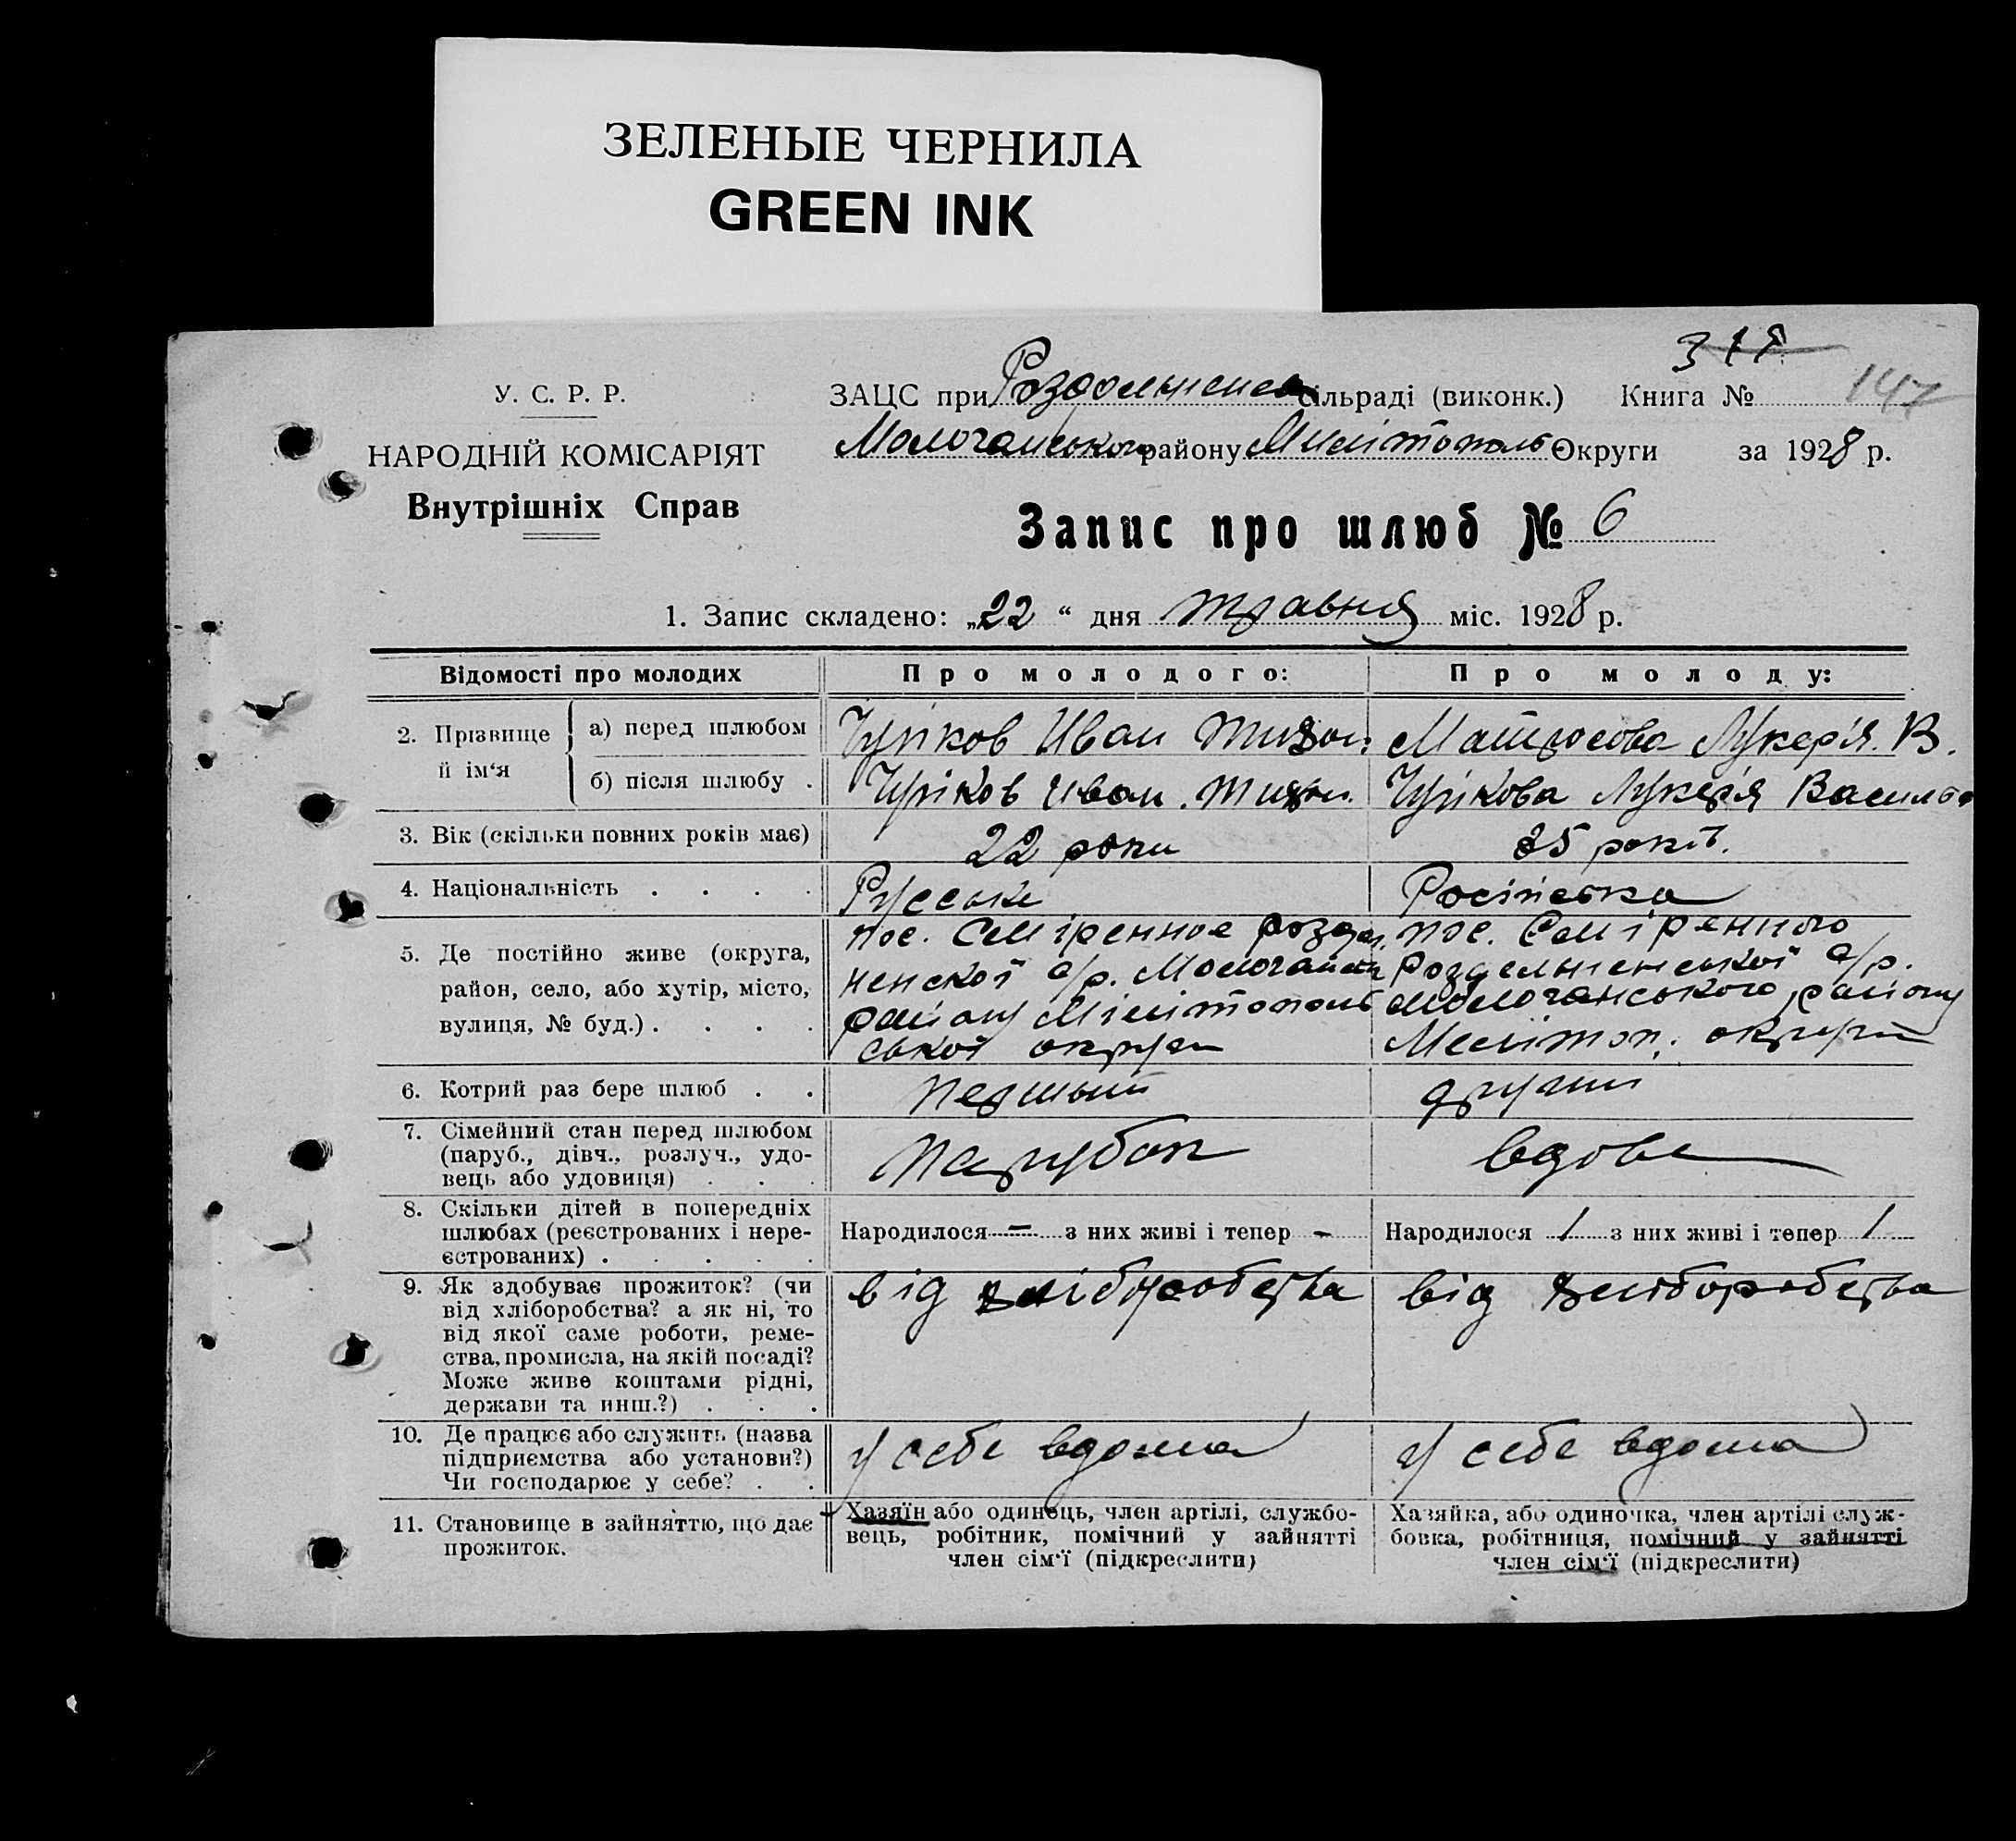 ЗЕЛЕНЫЕ ЧЕРНИЛА
GREEN INK
У. С. Р. Р.
НАРОДНІЙ КОМІСАРІЯТ
Внутрішніх Справ
ЗАЦС при сільраді (виконк.) Книга № 147
Молочанського району Округи за 1928 р.
Запис про шлюб № 6
1. Запис складено: „22“ дня травня міс. 1928 р.
Відомості про молодих
Про молодого:
Про молоду:
2. Прізвище й ім‘я
а) перед шлюбом
Чуріков Иван
Матросова Лукерія. В.
б) після шлюбу .
Чуріков Иван.
Чурікова Лукерія Василь
3. Вік (скільки повних років має)
22 роки
35 років.
4. Національність . . . .
Руський
Російська
5. Де постійно живе (округа,
район, село, або хутір, місто,
вулиця, № буд.) . . . .
пос. Сміренное
ненской с/р.
району Мілітополь
ської округи
пос. Сміренного
с/р.
Молочанського району
Меліттоп. округи
6. Котрий раз бере шлюб . .
перший
другий
7. Сімейний стан перед шлюбом
(паруб., дівч., розлуч., удо-
вець або удовиця) . . .
парубок
вдова
8. Скільки дітей в попередніх
шлюбах (реєстрованих і нере-
єстрованих) . . . . .
Народилося = з них живі і тепер -
Народилося 1 з них живі і тепер 1
9. Як здобуває прожиток? (чи
від хліборобства? а як ні, то
від якої саме роботи, реме-
ства, промисла, на якій посаді?
Може живе коштами рідні,
держави та инш.?) . . .
від хліборобства
від хліборобства
10. Де працює або служить (назва
підприємства або установи?)
Чи господарює у себе? . .
у себе вдома
у себе вдома
11. Становище в зайняттю, що дає
прожиток.
Хазяїн або одинець, член артілі, службо-
вець, робітник, помічний у зайнятті
член сім‘ї (підкреслити)
Хазяйка, або одиночка, член артілі служ-
бовка, робітниця, помічний у зайнятті
член сім‘ї (підкреслити)